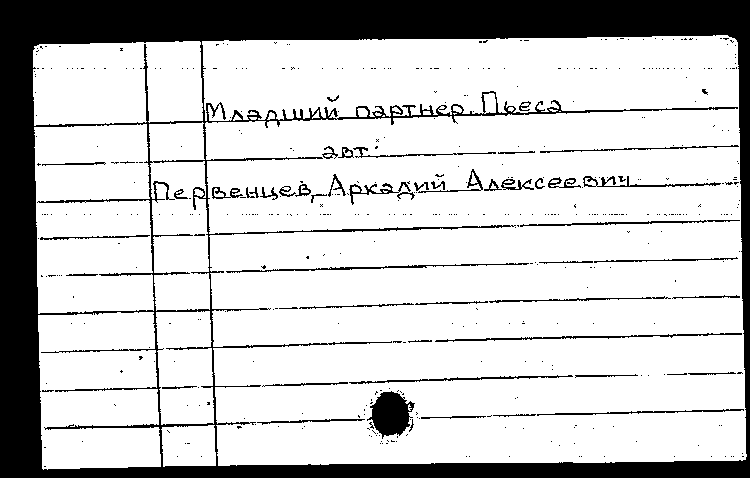 Младший партнер. Пьеса
авт:
Первенцев, Аркадий Алексеевич